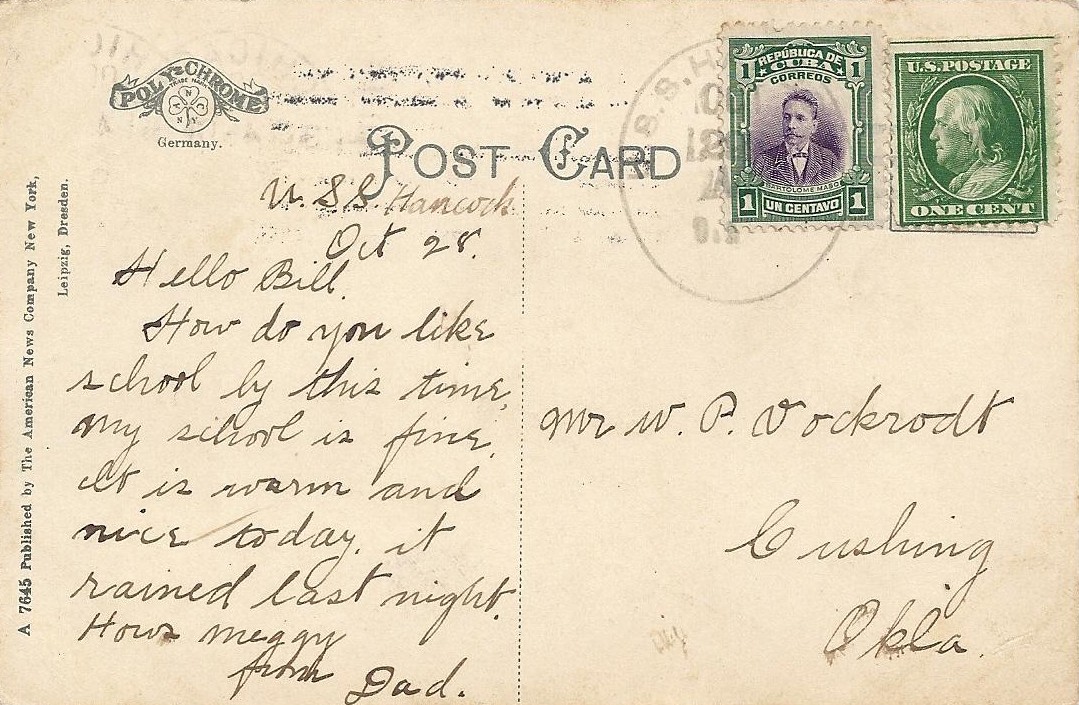 POLY-CHROME
TRADE MARK
Germany.
POST CARD
REPÚBLICA DE
CUBA
CORREOS
1 1
BARTOLOMÉ MASÓ
1 UN CENTAVO 1
U.S. POSTAGE
ONE CENT
U.S.S. H
A 7645 Published by The American News Company New York,
Leipzig, Dresden.
U.S.S Hancock
Oct 28.
Hello Bill.
How do you like
school by this time,
my school is fine,
It is warm and
nice today. it
rained last night.
Hows meggy
from Dad.
Mr W. P. Vockrodt
Cushing
Okla.